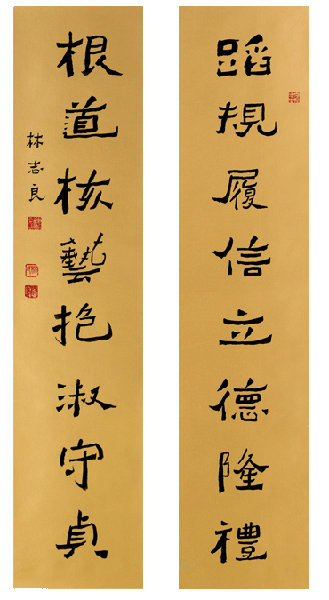 蹈規履信立德隆禮
根道核藝抱淑守貞
林志良